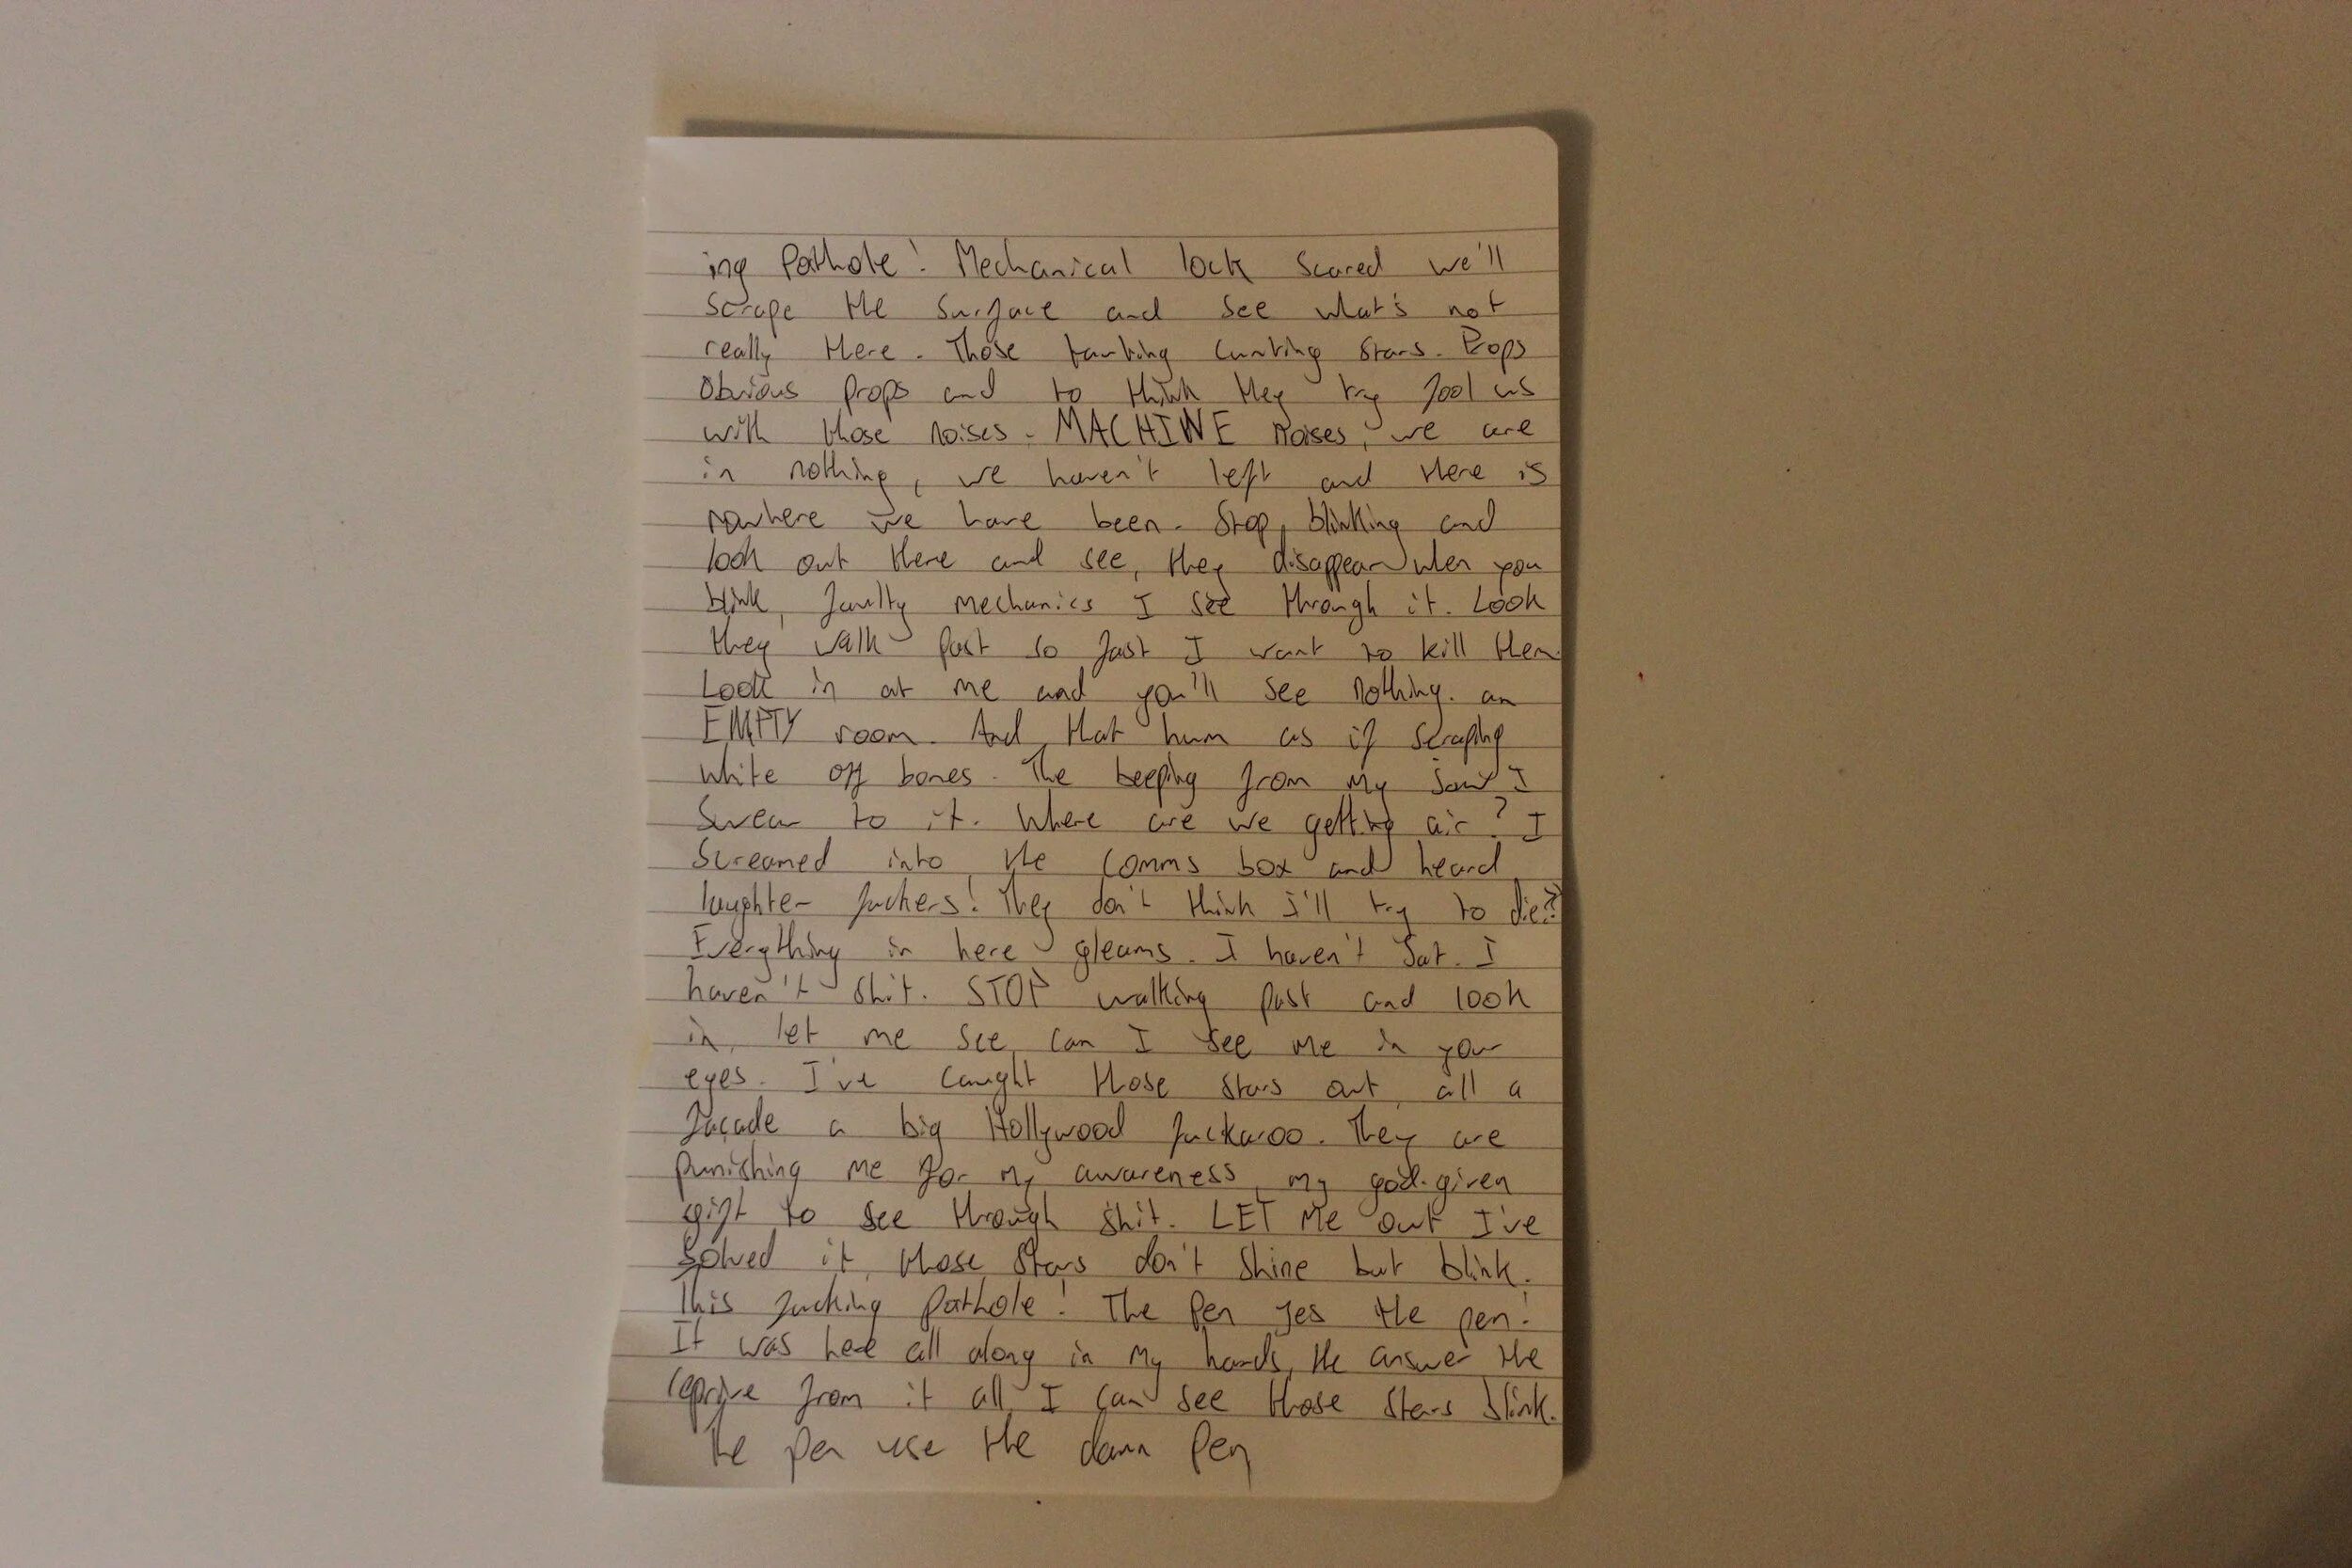 ing Pothole! Mechanical lock scared we'll
scrape the surface and see what's not
really there. Those fucking cunting stars. Props
obvious props and to think they try fool us
with those noises. MACHINE noises, we are
in nothing, we haven't left and there is
nowhere we have been. Stop blinking and
look out there and see, they disappear when you
blink, faulty mechanics I see through it. Look
they walk past so fast I want to kill them.
Look in at me and you'll see nothing. an
EMPTY room. And that hum as if scraping
white off bones. The beeping from my jaw I
swear to it. Where are we getting air? I
screamed into the comms box and heard
laughter fuckers! They don't think I'll try to die??
Everything in here gleams. I haven't sat. I
haven't shit. STOP walking past and look
in, let me see can I see me in your
eyes. I've caught those stars out, all a
façade a big Hollywood fuckaroo. They are
punishing me for my awareness, my god-given
gift to see through shit. LET Me out I've
solved it, those stars don't shine but blink.
This fucking pothole! The pen yes the pen!
It was here all along in my hands, the answer the
reprive from it all I can see those stars blink.
The pen use the damn pen